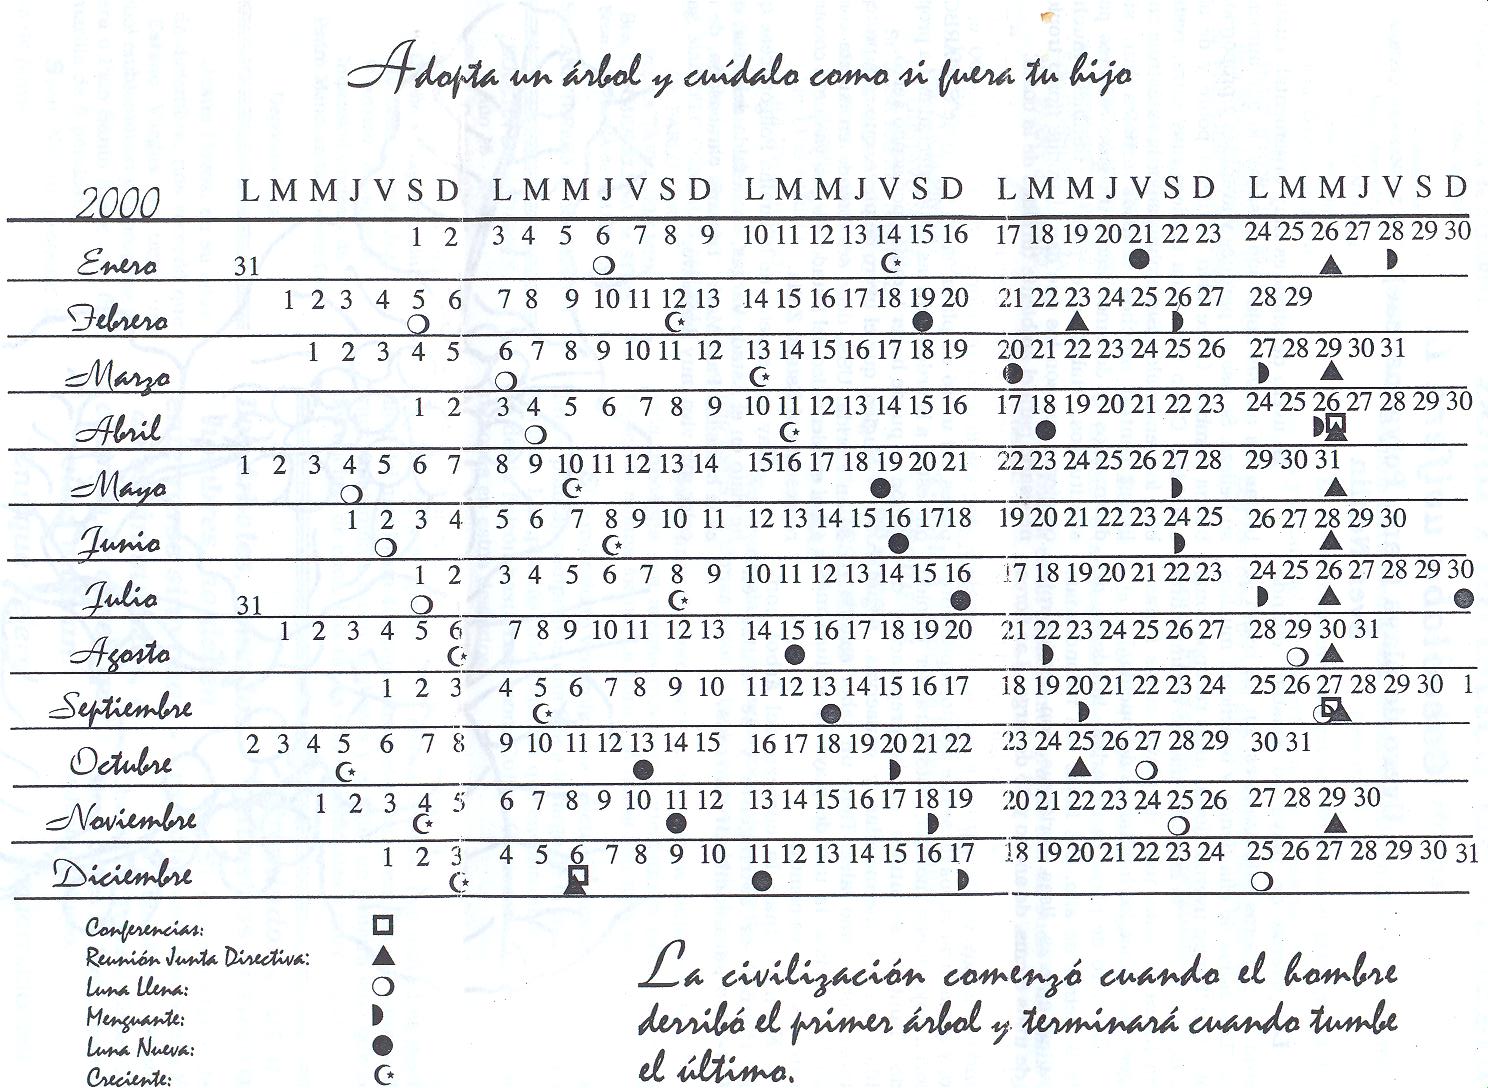 Adopta un árbol y cuídalo como si fuera tu hijo
2000 L M M J V S D L M M J V S D L M M J V S D L M M J V S D L M M J V S D
1 2 3 4 5 6 7 8 9 10 11 12 13 14 15 16 17 18 19 20 21 22 23 24 25 26 27 28 29 30
Enero 31
1 2 3 4 5 6 7 8 9 10 11 12 13 14 15 16 17 18 19 20 21 22 23 24 25 26 27 28 29
Febrero
1 2 3 4 5 6 7 8 9 10 11 12 13 14 15 16 17 18 19 20 21 22 23 24 25 26 27 28 29 30 31
Marzo
1 2 3 4 5 6 7 8 9 10 11 12 13 14 15 16 17 18 19 20 21 22 23 24 25 26 27 28 29 30
Abril
1 2 3 4 5 6 7 8 9 10 11 12 13 14 15 16 17 18 19 20 21 22 23 24 25 26 27 28 29 30 31
Mayo
1 2 3 4 5 6 7 8 9 10 11 12 13 14 15 16 17 18 19 20 21 22 23 24 25 26 27 28 29 30
Junio
1 2 3 4 5 6 7 8 9 10 11 12 13 14 15 16 17 18 19 20 21 22 23 24 25 26 27 28 29 30
Julio 31
1 2 3 4 5 6 7 8 9 10 11 12 13 14 15 16 17 18 19 20 21 22 23 24 25 26 27 28 29 30 31
Agosto
1 2 3 4 5 6 7 8 9 10 11 12 13 14 15 16 17 18 19 20 21 22 23 24 25 26 27 28 29 30 1
Septiembre
2 3 4 5 6 7 8 9 10 11 12 13 14 15 16 17 18 19 20 21 22 23 24 25 26 27 28 29 30 31
Octubre
1 2 3 4 5 6 7 8 9 10 11 12 13 14 15 16 17 18 19 20 21 22 23 24 25 26 27 28 29 30
Noviembre
1 2 3 4 5 6 7 8 9 10 11 12 13 14 15 16 17 18 19 20 21 22 23 24 25 26 27 28 29 30 31
Diciembre
Conferencias:
Reunión Junta Directiva:
Luna Llena:
Menguante:
Luna Nueva:
Creciente:
La civilización comenzó cuando el hombre
derribó el primer árbol y terminará cuando tumbe
el último.